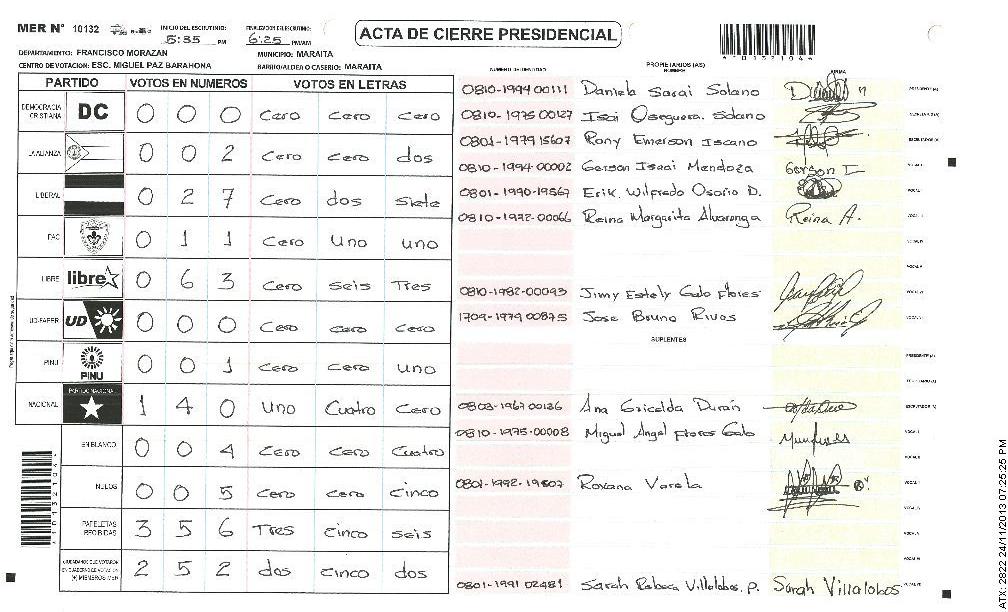 MER N° 10132 INICIO DEL ESCRUTINIO: 5:35 PM FINALIZACION DEL ESCRUTINIO: 6:25 PM/AM ACTA DE CIERRE PRESIDENCIAL
DEPARTAMENTO: FRANCISCO MORAZAN MUNICIPIO: MARAITA
CENTRO DE VOTACION: ESC. MIGUEL PAZ BARAHONA BARRIO/ALDEA O CASERIO: MARAITA
PARTIDO VOTOS EN NUMEROS VOTOS EN LETRAS
DEMOCRACIA CRISTIANA DC 0 0 0 Cero Cero Cero
LA ALIANZA 0 0 2 Cero Cero dos
LIBERAL 0 2 7 Cero dos Siete
PAC 0 1 1 Cero Uno uno
LIBRE libre 0 6 3 Cero Seis Tres
UD-FAPER UD 0 0 0 Cero Cero Cero
PINU PINU 0 0 1 Cero Cero uno
NACIONAL PARTIDO NACIONAL 1 4 0 Uno Cuatro Cero
EN BLANCO 0 0 4 Cero Cero Cuatro
NULOS 0 0 5 Cero Cero Cinco
PAPELETAS RECIBIDAS 3 5 6 Tres Cinco Seis
CIUDADANOS QUE VOTARON 2 5 2 dos Cinco dos
(+) MIEMBROS MER
NUMERO DE IDENTIDAD PROPIETARIOS (AS) NOMBRE FIRMA
0810-1994 00111 Daniela Sarai Solano
0810-1975 00127 Isai Oseguera Solano
0801-1979 15607 Rony Emerson Iscano
0810-1994-00002 Gerson Isaai Mendoza Gerson I
0801-1990-19567 Erik Wilfredo Osorio D.
0810-1972-00066 Reina Margarita Alvarenga Reina A.
0810-1982-00093 Jimy Estely Galo Flores
1709-1979 00875 Jose Bruno Rivas
SUPLENTES
0803-1967 00136 Ana Gricelda Durán
0810-1975-00008 Miguel Angel Flores Galo
0801-1992-19807 Roxana Varela
0801-1991 02481 Sarah Rebeca Villalobos P. Sarah Villalobos
ATX 2822 24/11/2013 07:25:25 PM